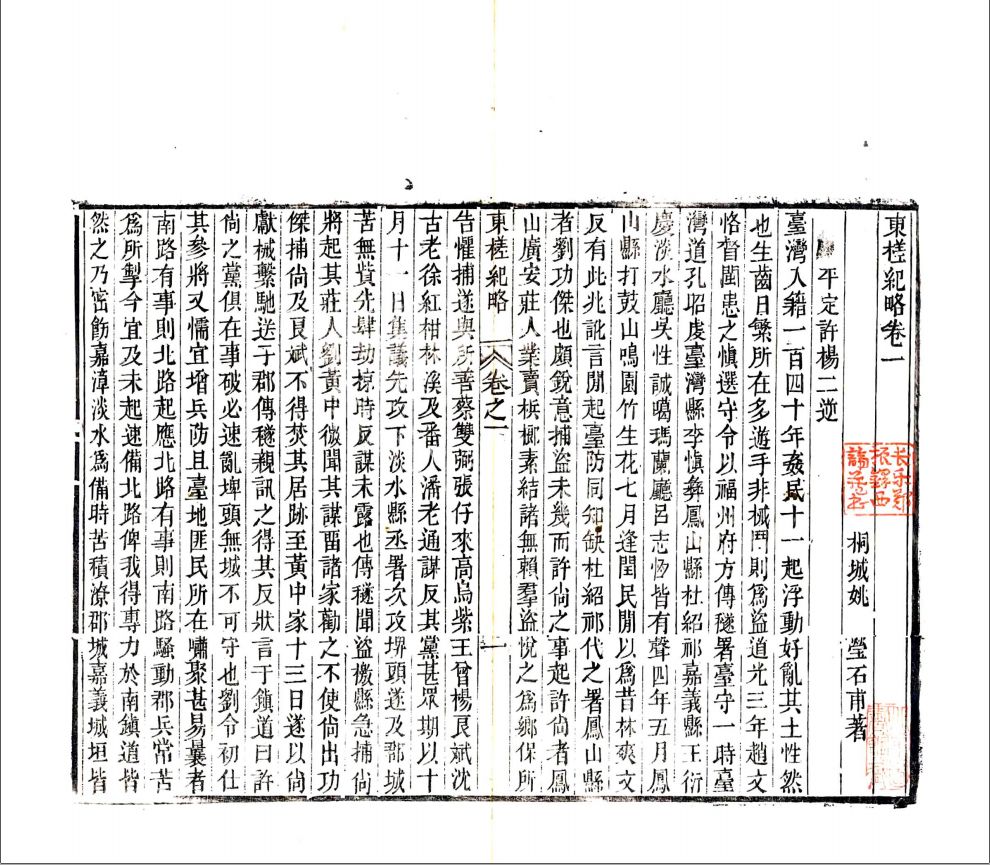 東槎紀略卷一
桐城姚 瑩石甫著
平定許楊二逆
臺灣入籍一百四十年姦民十一起浮動好亂其土性然
也生齒日繁所在多遊手非械鬥則爲盜道光三年趙文
恪督閩患之慎選守令以福州府方傳穟署臺守一時臺
灣道孔昭虔臺灣縣李慎彝鳳山縣杜紹祁嘉義縣王衍
慶淡水廳吳性誠噶瑪蘭廳呂志恆皆有聲四年五月鳳
山縣打鼓山鳴園竹生花七月逢閏民閒以爲昔林爽文
反有此兆訛言閒起臺防同知缺杜紹祁代之署鳳山縣
者劉功傑也頗銳意捕盜未幾而許尚之事起許尚者鳳
山廣安莊人業賣檳榔素結諸無賴羣盜悅之爲鄉保所
東槎紀略 卷之一 一
告懼捕遂與所善蔡雙弼張仔來高烏紫王曾楊良斌沈
古老徐紅柑林溪及番人潘老通謀反其黨甚眾期以十
月十一日集議先攻下淡水縣丞署次攻埤頭遂及郡城
苦無貲先肆劫掠時反謀未露也傳穟聞盜檄縣急捕尚
將起其莊人劉黃中微聞其謀畱諸家勸之不使尚出功
傑捕尚及良斌不得焚其居跡至黃中家十三日遂以尚
獻械繫馳送于郡傳穟親訊之得其反狀言于鎮道曰許
尚之黨俱在事破必速亂埤頭無城不可守也劉令初仕
其參將又懦宜增兵防且臺地匪民所在嘯聚甚易曩者
南路有事則北路起應北路有事則南路騷動郡兵常苦
爲所掣今宜及未起速備北路俾我得專力於南鎮道皆
然之乃密飭嘉漳淡水爲備時苦積潦郡城嘉義城垣皆